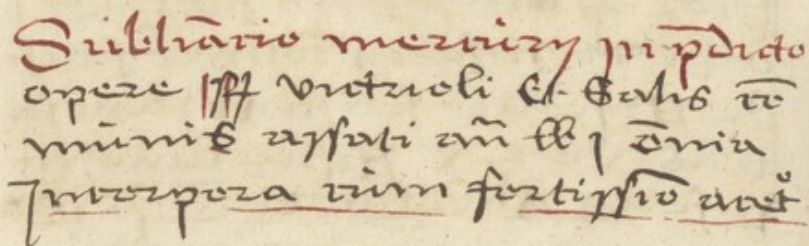 Sublīatio mercurij in p̄dicto
opere R̸ vitrioli et Salis cō
munis assati an̄ lb j oīnia
Incorpora cum fortissīo acet̊